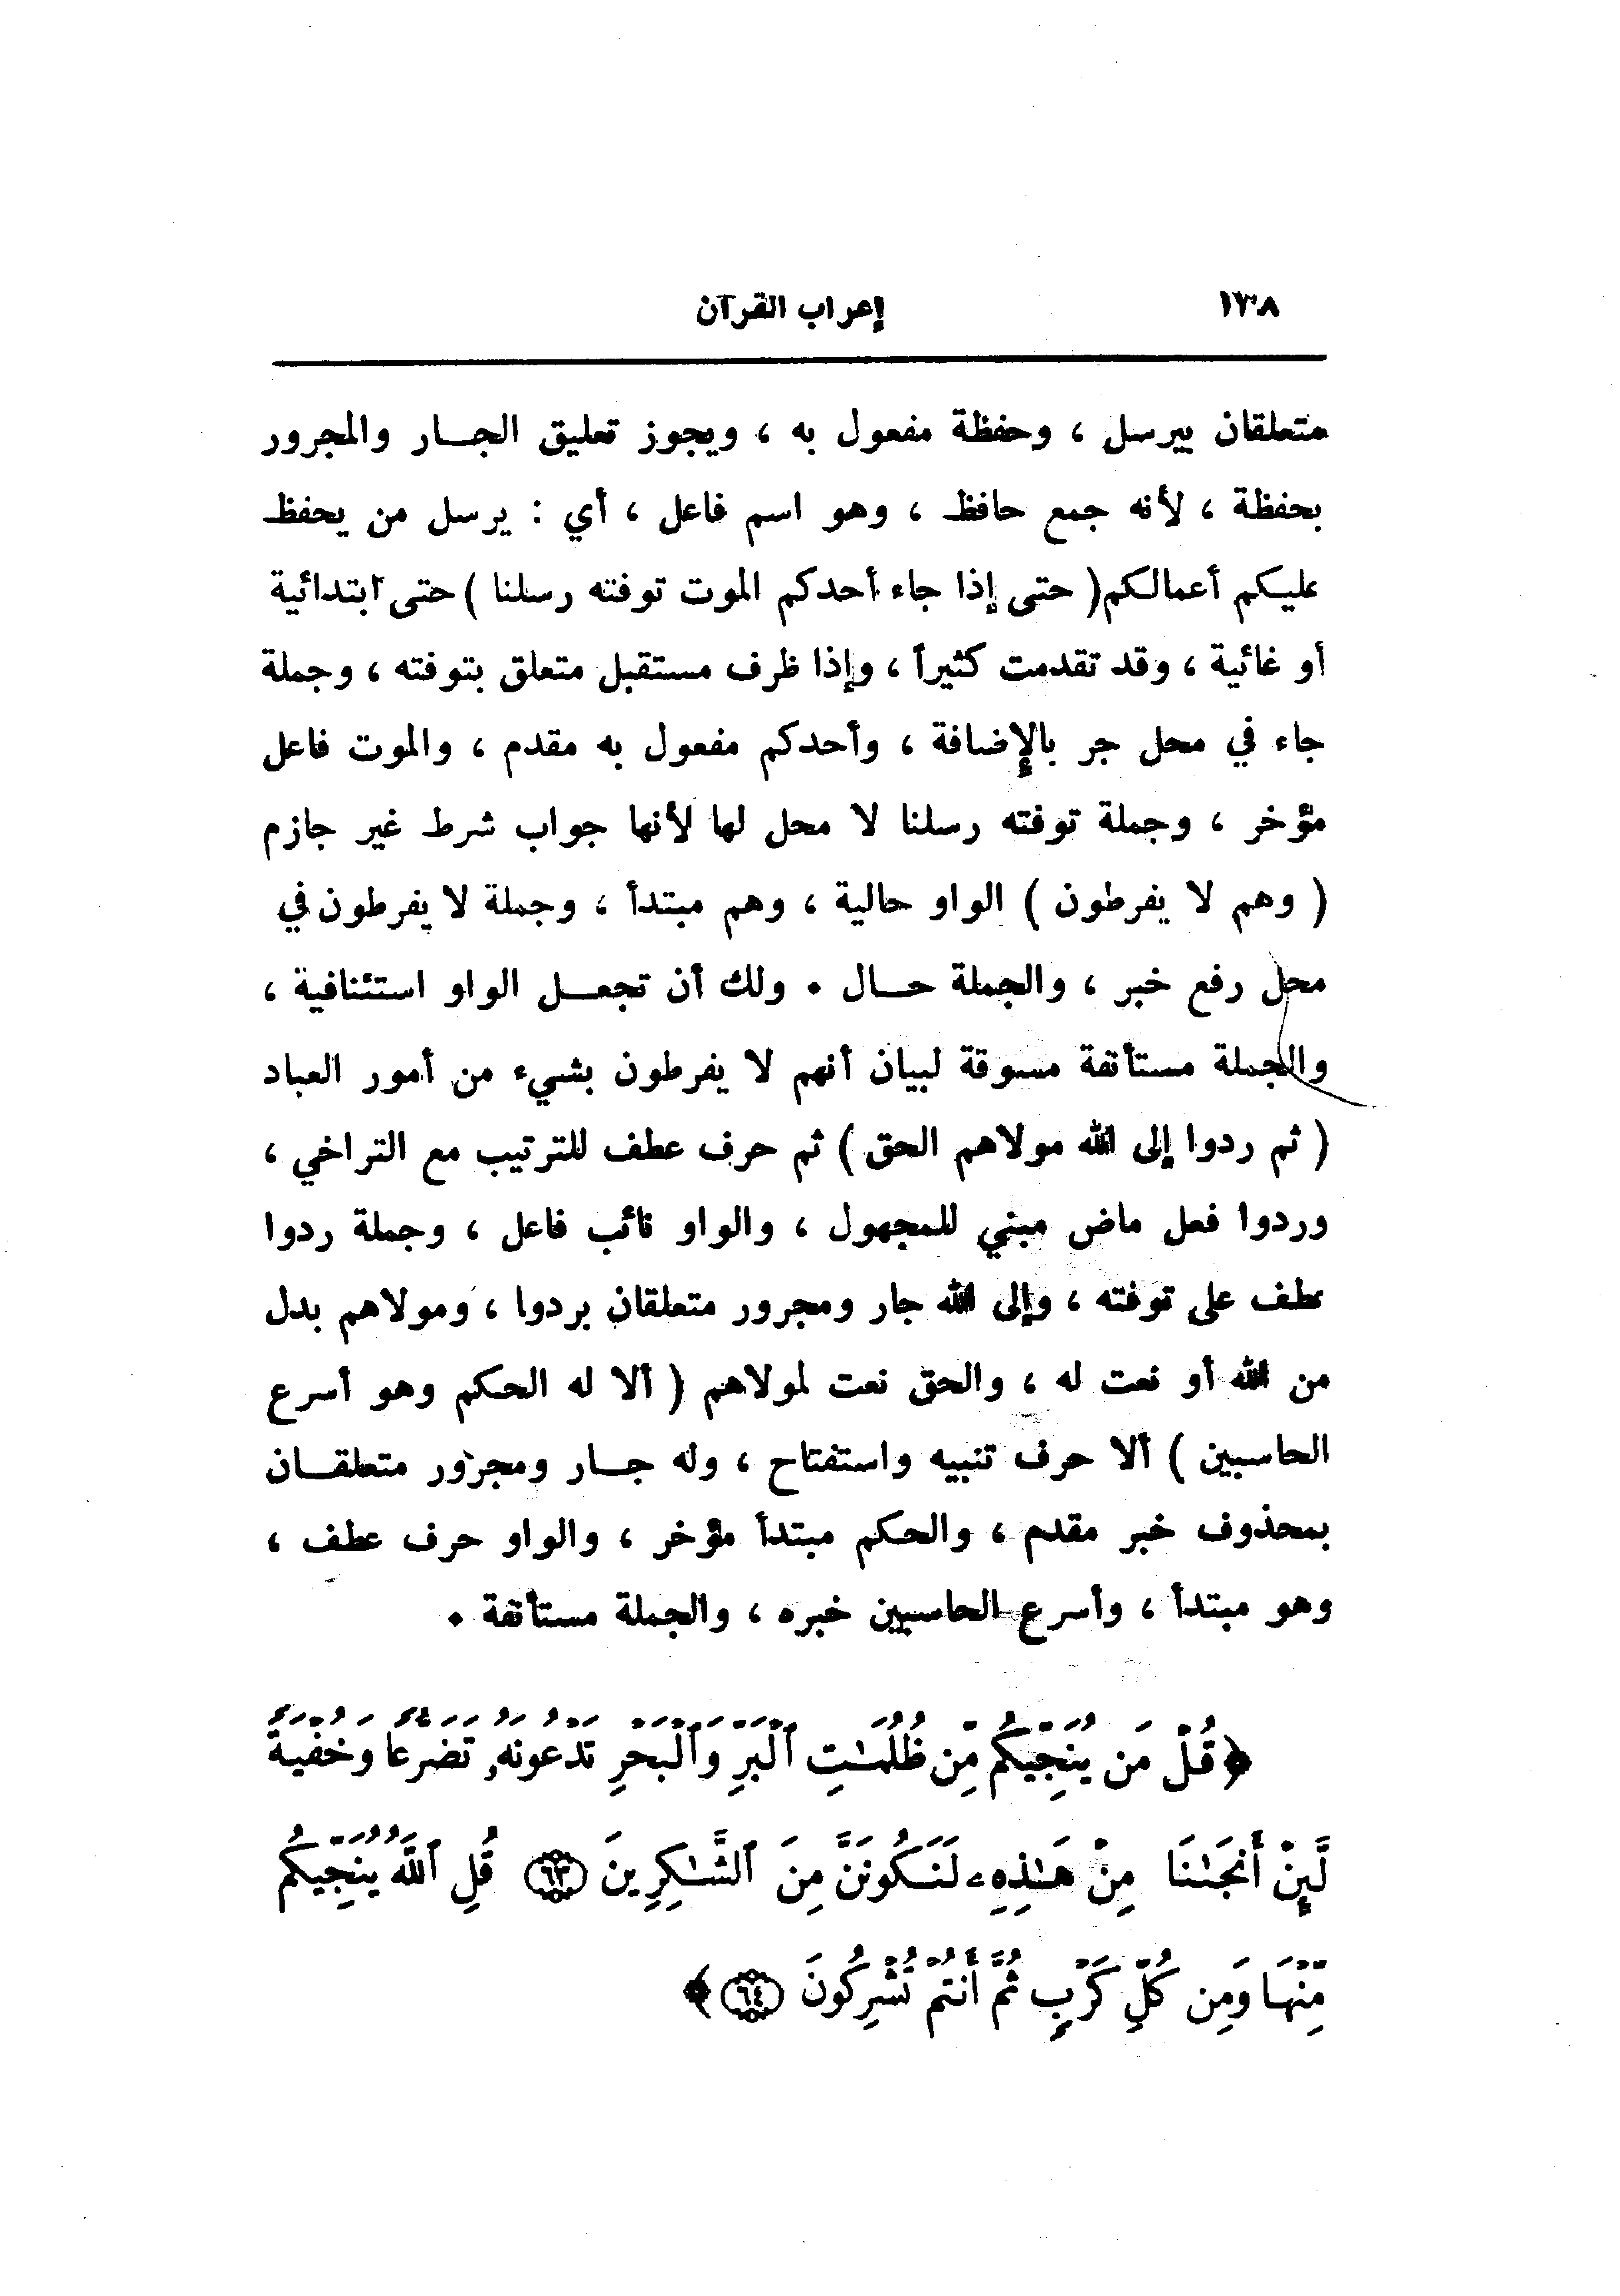 ١٣٨ إعراب القرآن
متعلقان بيرسل ، وحفظة مفعول به ، ويجوز تعليق الجـار والمجرور
بحفظة ، لأنه جمع حافظ ، وهو اسم فاعل ، أي : يرسل من يحفظ
عليكم أعمالكم( حتى إذا جاء أحدكم الموت توفته رسلنا ) حتى ابتدائية
أو غائية ، وقد تقدمت كثيراً ، وإذا ظرف مستقبل متعلق بتوفته ، وجملة
جاء في محل جر بالإضافة ، وأحدكم مفعول به مقدم ، والموت فاعل
مؤخر ، وجملة توفته رسلنا لا محل لها لأنها جواب شرط غير جازم
( وهم لا يفرطون ) الواو حالية ، وهم مبتدأ ، وجملة لا يفرطون في
محل رفع خبر ، والجملة حـال . ولك أن تجعـل الواو استئنافية ،
والجملة مستأنفة مسوقة لبيان أنهم لا يفرطون بشيء من أمور العباد
( ثم ردوا إلى الله مولاهم الحق ) ثم حرف عطف للترتيب مع التراخي ،
وردوا فعل ماض مبني للمجهول ، والواو نائب فاعل ، وجملة ردوا
عطف على توفته ، وإلى الله جار ومجرور متعلقان بردوا ، ومولاهم بدل
من الله أو نعت له ، والحق نعت لمولاهم ( ألا له الحكم وهو أسرع
الحاسبين ) ألا حرف تنبيه واستفتاح ، وله جـار ومجرور متعلقـان
بمحذوف خبر مقدم ، والحكم مبتدأ مؤخر ، والواو حرف عطف ،
وهو مبتدأ ، وأسرع الحاسبين خبره ، والجملة مستأنفة .
﴿قُلْ مَن يُنَجِّيكُم مِّن ظُلُمَـٰتِ ٱلْبَرِّ وَٱلْبَحْرِ تَدْعُونَهُۥ تَضَرُّعًا وَخُفْيَةً
لَّئِنْ أَنجَىٰنَا مِنْ هَـٰذِهِۦ لَنَكُونَنَّ مِنَ ٱلشَّـٰكِرِينَ ٦٣ قُلِ ٱللَّهُ يُنَجِّيكُم
مِّنْهَا وَمِن كُلِّ كَرْبٍ ثُمَّ أَنتُمْ تُشْرِكُونَ ٦٤﴾